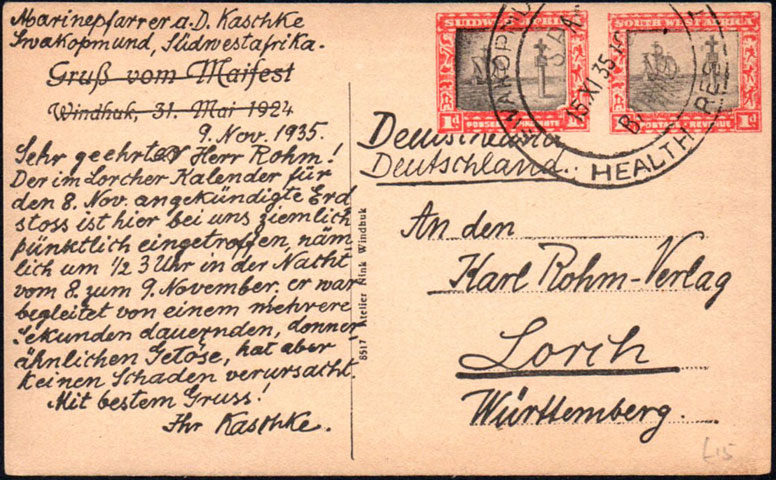 Marinepfarrer a. D. Kaschke
Swakopmund, Südwestafrika.
Gruß vom Maifest
Windhuk, 31. Mai 1924
9. Nov. 1935.
Sehr geehrter Herr Rohm!
Der im Lorcher Kalender für
den 8. Nov. angekündigte Erd
stoss ist hier bei uns ziemlich
pünktlich eingetroffen, näm
lich um 1/2 3 Uhr in der Nacht
vom 8. zum 9. November. er war
begleitet von einem mehrere
Sekunden dauernden, donner
ähnlichen Getöse, hat aber
keinen Schaden verursacht.
Mit bestem Gruss!
Ihr Kaschke.
8517 Atelier Nink Windhuk
SUIDWES-AFRIKA
POSSEL INKOMSTE
1d 1d
SOUTH WEST AFRICA
POSTAGE REVENUE
1d 1d
SWAKOPMUND
15 XI 35
HEALTH RES
Deutschland
Deutschland.
An den
Karl Rohm-Verlag
Lorch
Württemberg.
£15